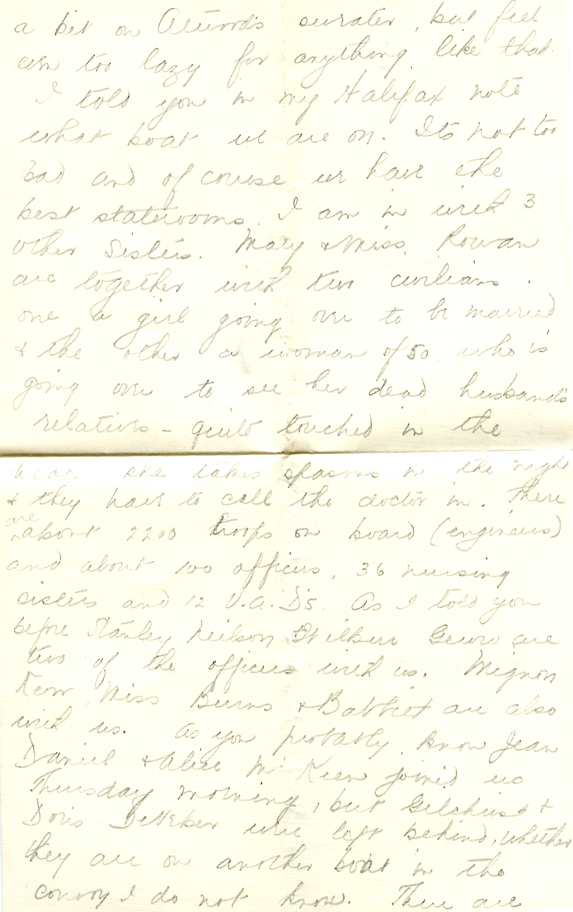 a bit on Atwood's sweater, but feel
am too lazy for anything like that.
I told you in my Halifax note
what boat we are on. Its not too
bad and of course we have the
best staterooms. I am in with 3
other Sisters. Mary & Miss Rowan
are together with two civilians.
one a girl going over to be married
& the other a woman of 50 who is
going over to see her dead husband's
relatives - quite touched in the
head she takes spasms in the night
& they have to call the doctor in. There
are about 2200 troops on board (engineers)
and about 100 officers, 36 nursing
sisters and 12 V.A.D's. As I told you
before Stanley Neilson & Wilbur are
two of the officers with us. Mignon
Kerr, Miss Burns & Babbitt are also
with us. As you probably know Jean
Daniel & Alice McKeen joined us
Thursday morning, but Gilchrist &
Doris were left behind, whether
they are on another boat in the
convoy I do not know. There are